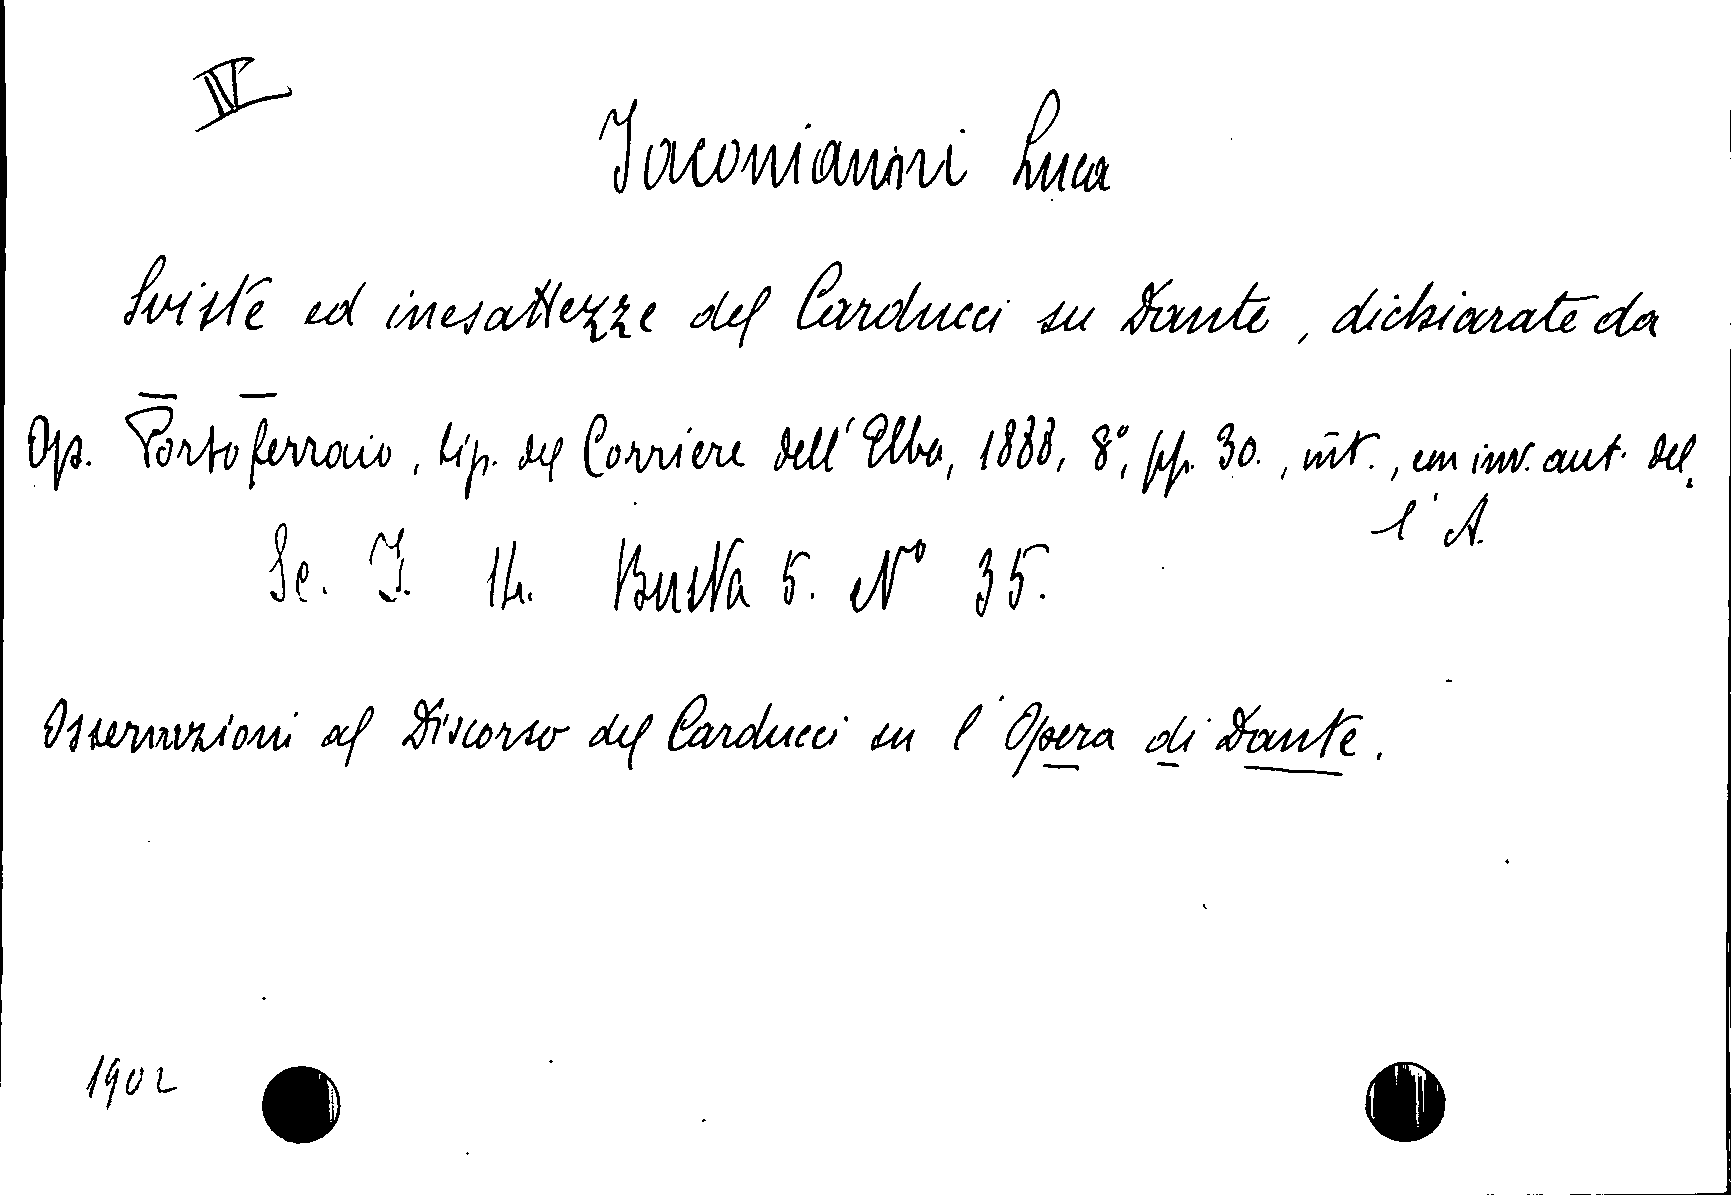 IV
Iaconianni Luca
Sviste ed inesattezze del Carducci su Dante, dichiarate da
Op. Portoferraio, tip. del Corriere dell'Elba, 1888, 8°, pp. 30., int., con inv. aut. del,
l'A.
Sc. I. 14. Busta 5. N° 35.
Osservazioni al Discorso del Carducci su l'Opera di Dante.
1902